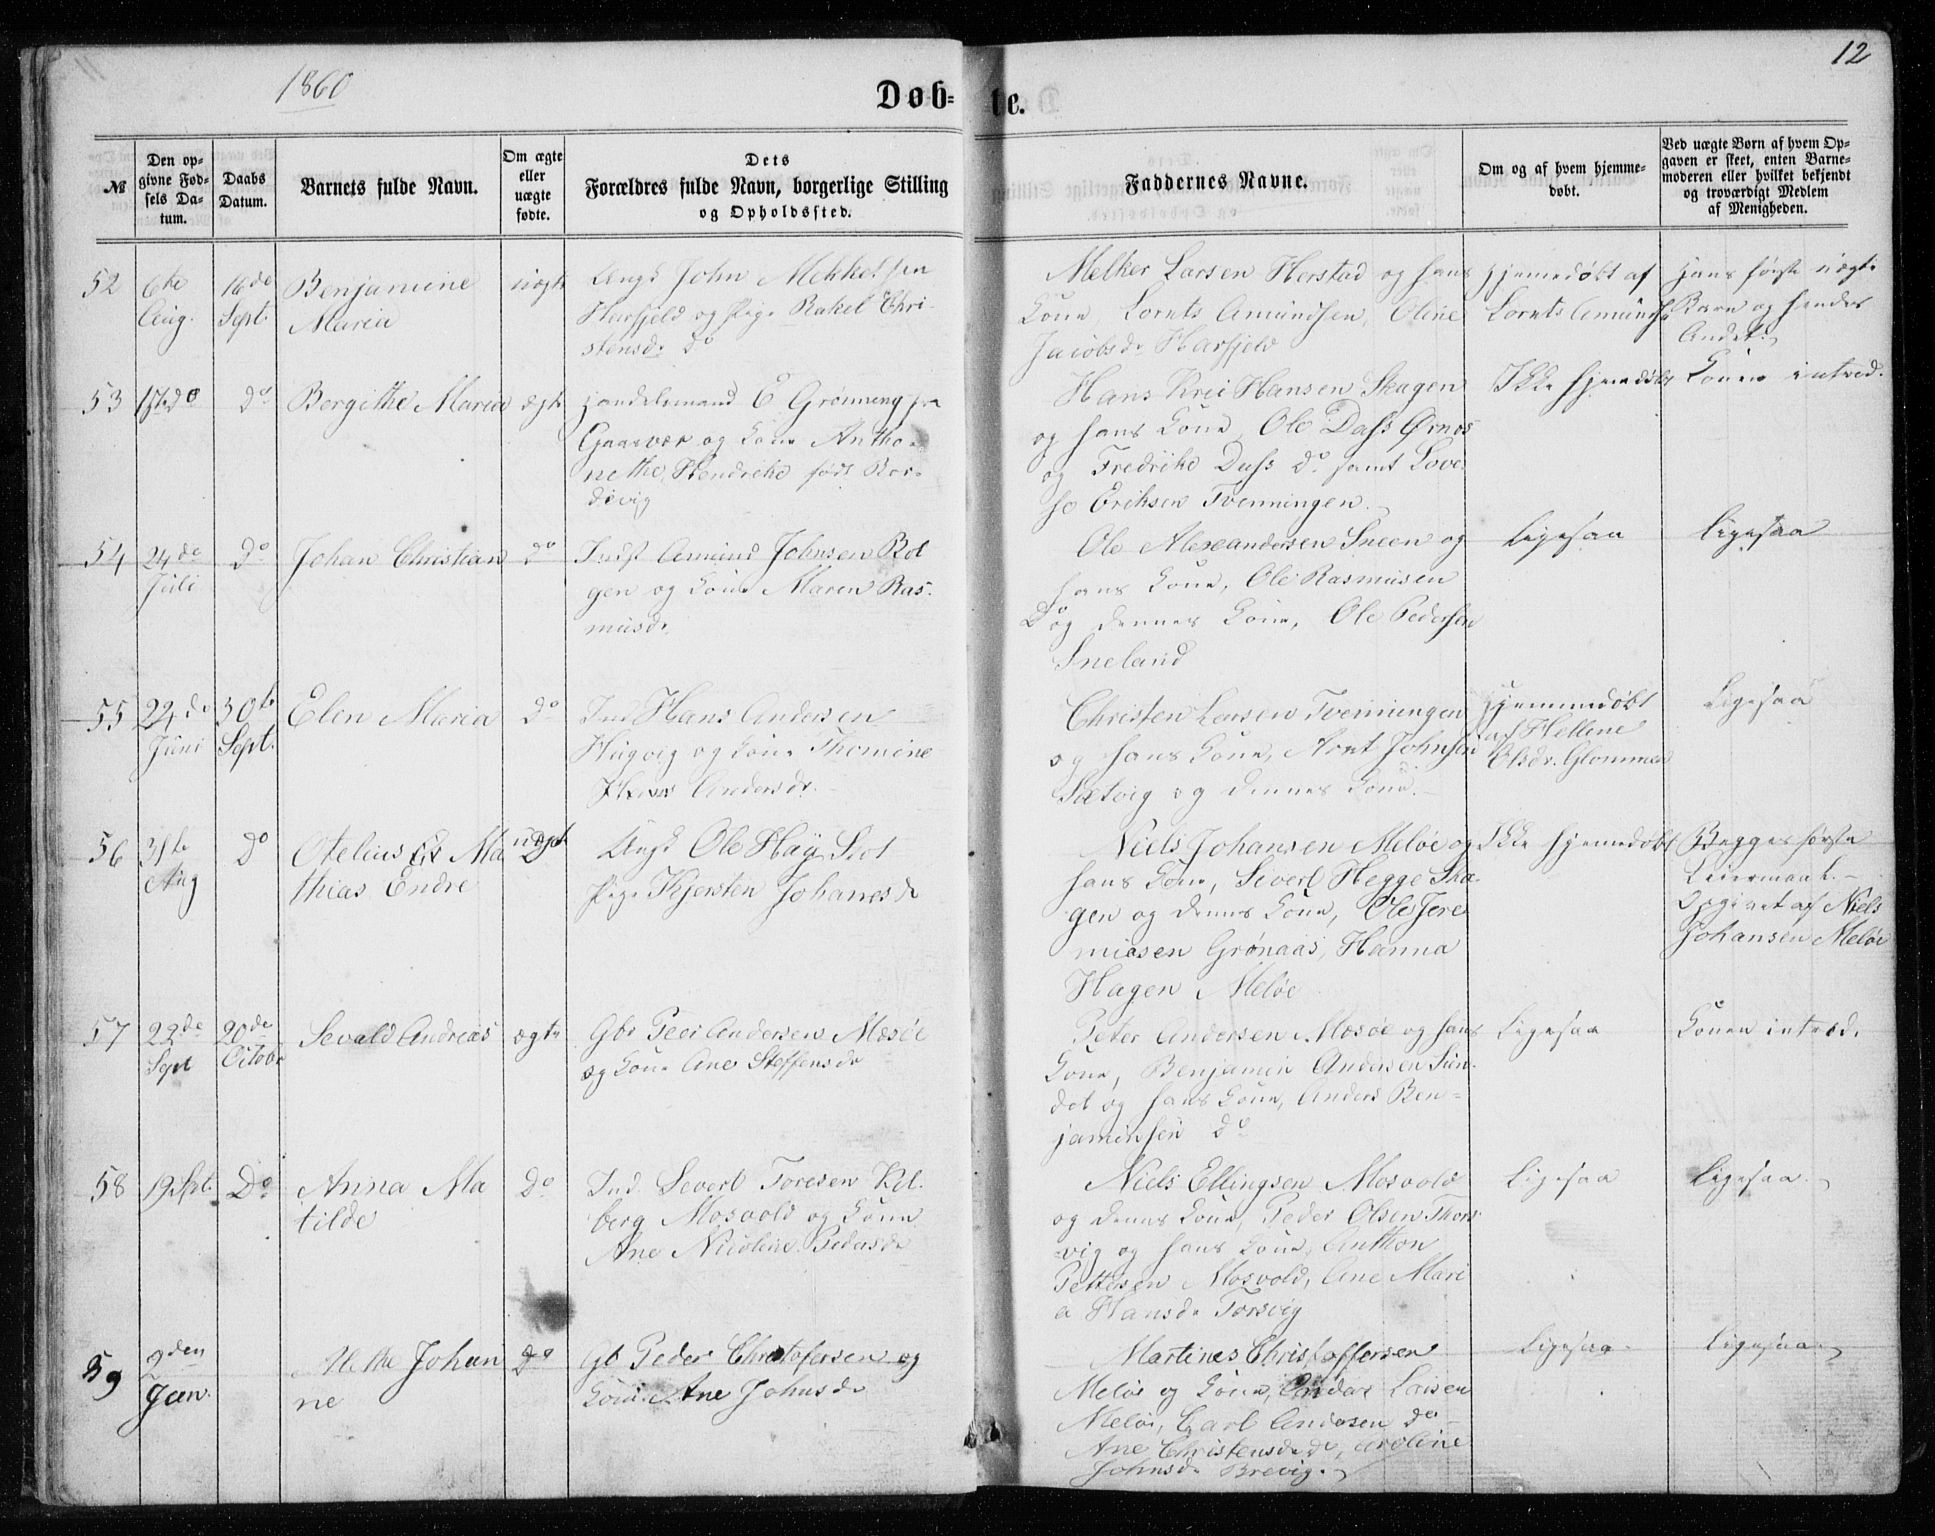 12
1860
Døb= te.
№
Den op=
givne Fød=
sels Da=
tum.
Daabs
Datum.
Barnets fulde Navn.
Om ægte
eller
uægte
fødte.
Dets
Forældres fulde Navn, borgerlige Stilling
og Opholdssted.
Faddernes Navne.
Om og af hvem hjemme=
døbt.
Ved uægte Børn af hvem Op=
gaven er skeet, enten Barne=
moderen eller hvilket bekjendt
og troværdigt Medlem
af Menigheden.
52
6te
Aug.
16de
Sept.
Benjamine
Maria
uægte
Ungk John Mekkelsen
Harfjeld og Pige Rakel Chri
stensd. Do
Melker Larsen Herstad og hans
Kone, Lornts Amundsen, Oline
Jacobsd. Harfjeld
Hjemedøbt af
Lornts Amunds
Hans første uægte
Barn og hendes
Andet.
53
Do
Bergithe Maria
ægte
Handelsmand E Grønning fra
og Kone Antho
nethe Hendrike født Bor=
divig
Hans Krei Hansen Skagen
og hans Kone, Ole Dass Ørnes
og Fredrike Dass Do samt Love
se Eriksen Tvenningen.
Ikke hjemedøbt
Konen introd.
54
24de
Juli
Do
Johan Christian
Do
Indst Amund Johnsen Bol
gen og Kone Maren Ras=
musd.
Ole Alexandersen Sneen og
hans Kone, Ole Rasmusen
Do og dennes Kone, Ole Pedersen
Sneland
Ligesaa
Ligesaa
55
22de
Juni
30te
Sept.
Elen Maria
Do
Ind Hans Andersen
Høgvig og Kone Thomine
Andersdr.
Christen Larsen Tvenningen
og hans Kone, Arnt Johnsen
Sætvig og dennes Kone.
Hjemmedøbt
af Hellene
Olsdr. Glommen
Ligesaa
56
31te
Aug
Do
Otelius Ma
thias Endre
uægte
Ungk Ole Hay Slot
Pige Kjersten Johanesd
Niels Johansen Meløe og
hans Kone, Severt Hegge Ska
gen og dennes Kone, Ole Jere
miasen Grønaas, Hanna
Hagen Meløe
Ikke hjemedøbt
Begges første
Leiermaal.
Opgivet af Niels
Johansen Meløe
57
22de
Sept
20de
Octobr
Sevald Andreas
ægte
Gbr Peer Andersen Mæsøe
og Kone Ane Steffensd
Peter Andersen Mæsøe og hans
Kone, Benjamin Andersen Sun
det og hans Kone, Anders Ben=
jaminsen Do
Ligesaa
Konen introd.
58
19 Spt.
Do
Anna Ma
tilde
Do
Ind. Severt Toresen Kil
berg Mosvold og Kone
Ane Nicoline Pedersd
Niels Ellingsen Mosvold
og dennes Kone, Peder Olsen Thors
vig og hans Kone, Anthon
Pettersen Mosvold, Ane Mari
a Hansd. Torsvig
Ligesaa
Ligesaa.
59
2den
Jan.
Methe Johan
ne
Do
Gb Peder Christofersen og
Kone Ane Johnsd
Martines Christoffersen
Meløe og Kone, Andas Larsen
Meløe, Carl Andersen do
Ane Christensd. do, Caroline
Johnsd. Brevig.
Ligesaa
Ligesaa